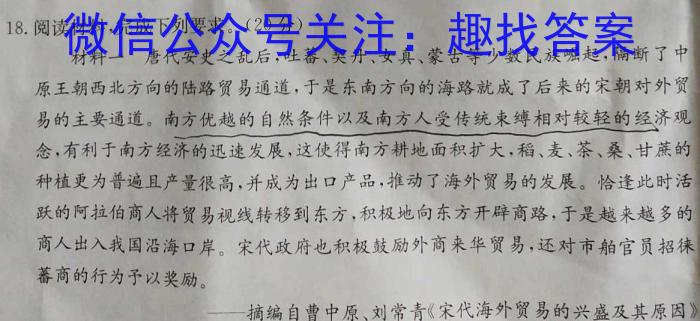 18.阅读材料,完成下列要求。(25分)
微信公众号关注：趣找答案
材料一 唐代安史之乱后,吐蕃、契丹、女真、蒙古等少数民族崛起,隔断了中
原王朝西北方向的陆路贸易通道,于是东南方向的海路就成了后来的宋朝对外贸
易的主要通道。南方优越的自然条件以及南方人受传统束缚相对较轻的经济观
念,有利于南方经济的迅速发展,这使得南方耕地面积扩大,稻、麦、茶、桑、甘蔗的
种植更为普遍且产量很高,并成为出口产品,推动了海外贸易的发展。恰逢此时活
跃的阿拉伯商人将贸易视线转移到东方,积极地向东方开辟商路,于是越来越多的
商人出入我国沿海口岸。宋代政府也积极鼓励外商来华贸易,还对市舶官员招徕
蕃商的行为予以奖励。
——摘编自曹中原、刘常青《宋代海外贸易的兴盛及其原因》